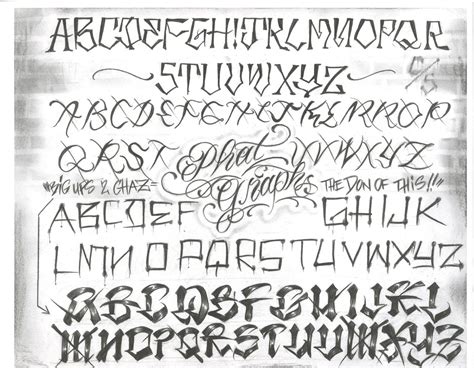 ABCDEFGHIJKLMNOPQR
C/S
STUVWXYZ
ABCDEFGHIJKLMNOP
QRST Phat UVWXYZ
"BIG UPS 2 GHAZ= Graphs THE DON OF THIS!!"
ABCDEF GHIJK
LMNOPQRSTUVWXYZ
ABCDEFGHIJKL
MNOPQRSTUVWXYZ